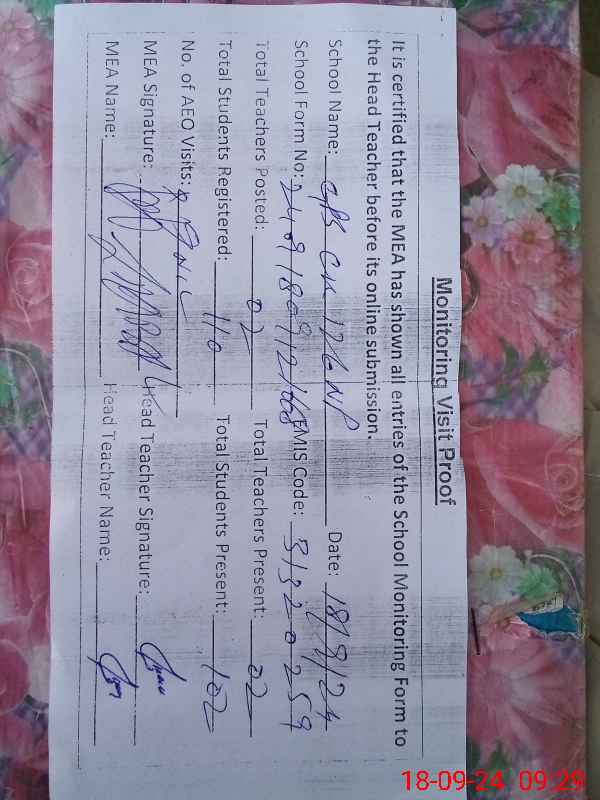 Monitoring Visit Proof
It is certified that the MEA has shown all entries of the School Monitoring Form to
the Head Teacher before its online submission.
School Name: GPS CH 126 NP Date: 18/9/24
School Form No: EMIS Code: 31320259
Total Teachers Posted: 02 Total Teachers Present: 02
Total Students Registered: 110 Total Students Present: 102
No. of AEO Visits: NIL
MEA Signature: Head Teacher Signature:
MEA Name: Head Teacher Name:
18-09-24 09:29